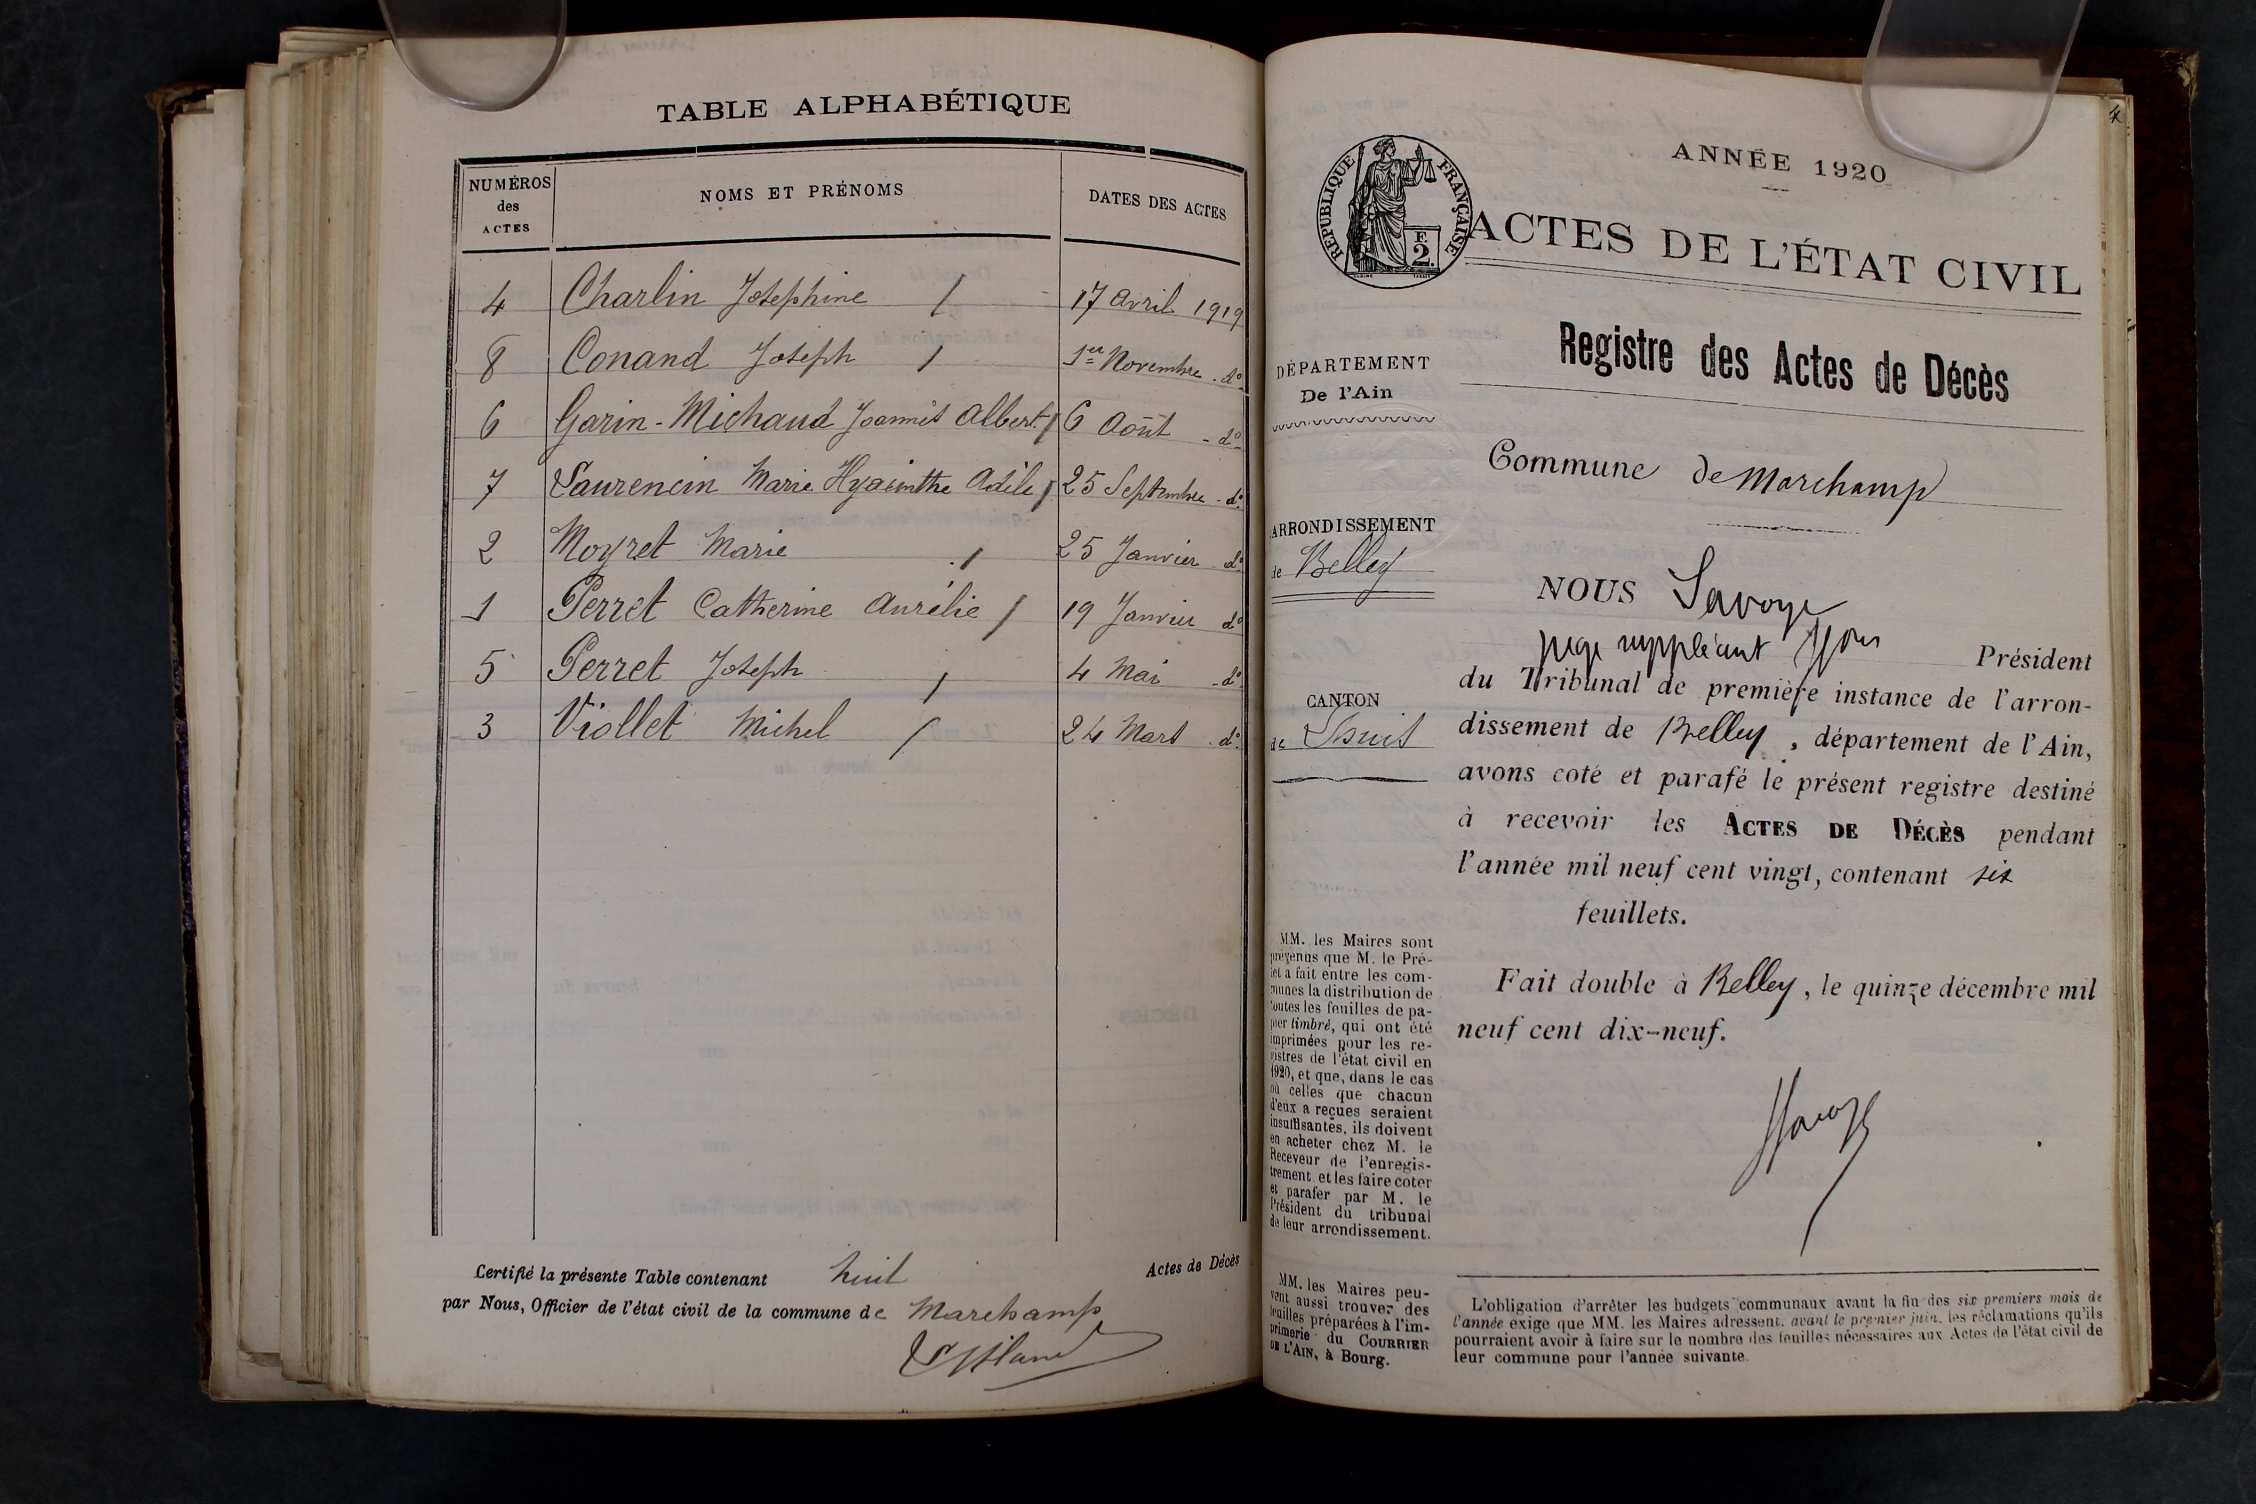 TABLE ALPHABÉTIQUE
NUMÉROS des ACTES NOMS ET PRÉNOMS DATES DES ACTES
4 Charlin Josephine 17 Avril 1919
8 Conand Joseph 1er Novembre do
6 Garin-Michaud Joannès Albert 6 Août do
7 Laurencin Marie Hyacinthe Adèle 25 Septembre do
2 Moyret Marie 25 Janvier do
1 Perret Catherine Aurélie 19 Janvier do
5 Perret Joseph 4 Mai do
3 Viollet Michel 24 Mars do
Certifié la présente Table contenant huit Actes de Décès
par Nous, Officier de l'état civil de la commune de Marchamp
ANNÉE 1920
RÉPUBLIQUE FRANÇAISE
F. 2.
ACTES DE L'ÉTAT CIVIL
Registre des Actes de Décès
DÉPARTEMENT
De l'Ain
Commune de Marchamp
ARRONDISSEMENT
de Belley
CANTON
de Lhuis
NOUS Savoye
juge suppléant pour Président
du Tribunal de première instance de l'arron-
dissement de Belley, département de l'Ain,
avons coté et parafé le présent registre destiné
à recevoir les ACTES DE DÉCÈS pendant
l'année mil neuf cent vingt, contenant six
feuillets.
Fait double à Belley, le quinze décembre mil
neuf cent dix-neuf.
Savoye
MM. les Maires sont
prévenus que M. le Pré-
fet a fait entre les com-
munes la distribution de
toutes les feuilles de pa-
pier timbré, qui ont été
imprimées pour les re-
gistres de l'état civil en
1920, et que, dans le cas
où celles que chacun
d'eux a reçues seraient
insuffisantes, ils doivent
en acheter chez M. le
Receveur de l'enregis-
trement et les faire coter
et parafer par M. le
Président du tribunal
de leur arrondissement.
MM. les Maires peu-
vent aussi trouver des
feuilles préparées à l'im-
primerie du COURRIER
DE L'AIN, à Bourg.
L'obligation d'arrêter les budgets communaux avant la fin des six premiers mois de
l'année exige que MM. les Maires adressent, avant le premier juin, les réclamations qu'ils
pourraient avoir à faire sur le nombre des feuilles nécessaires aux Actes de l'état civil de
leur commune pour l'année suivante.